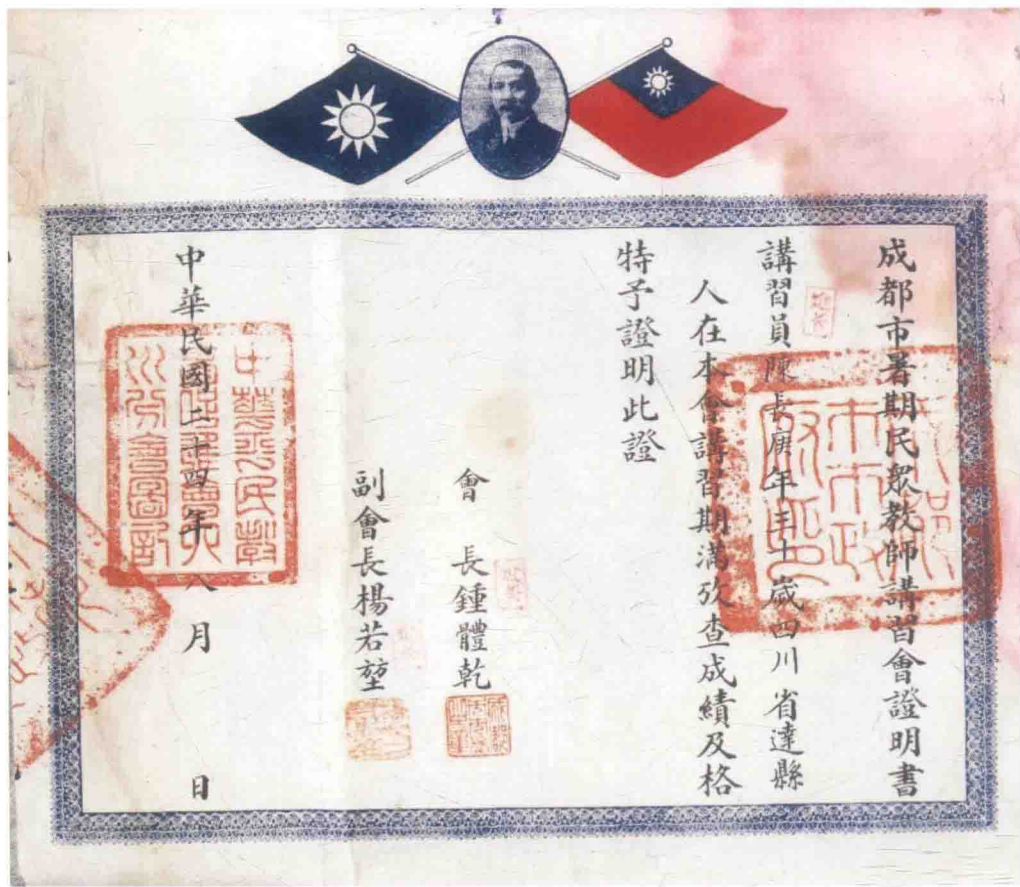 成都市暑期民眾教師講習會證明書
講習員陳長庚年三十歲四川省達縣
人在本會講習期滿攷查成績及格
特予證明此證
會 長鍾體乾
副會長楊若堃
中華民國二十四年八月 日
成都市市政府印